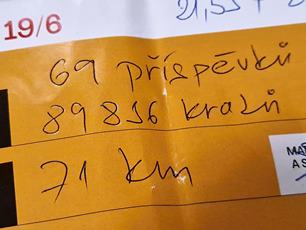 21,55 +
19/6
69 příspěvků
89 836 kraků
71 km
MA
AS